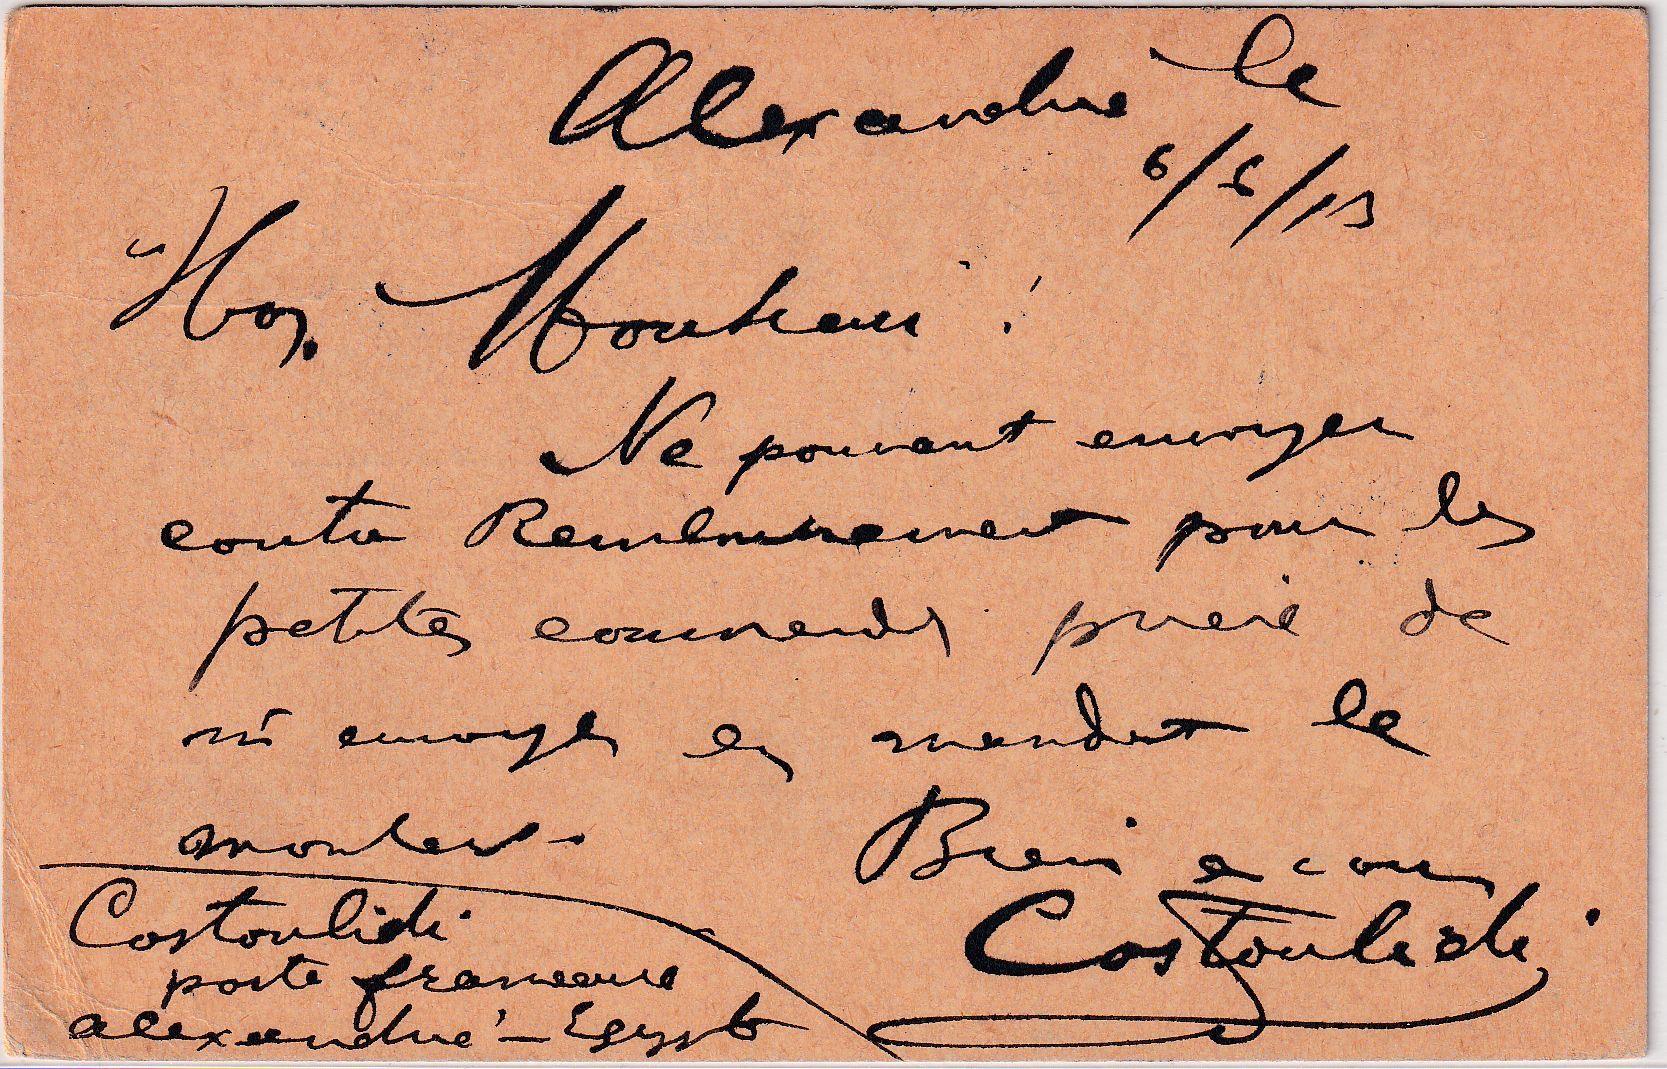 Alexandrie le
6/5/13
Mouhaui !
Ne pouvant envoyer
contre Remboursement pour les
petites commandes prière de
m'envoyer en mandat le
montant.
Bien a vous
Costoulidi
Costoulidi
poste française
alexandrie - Egypt